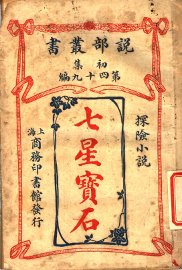 說部叢書
初集
第四十九編
探險小說
七星寶石
上海商務印書館發行